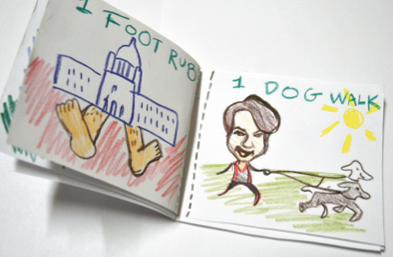 1 FOOT RUB
1 DOG WALK